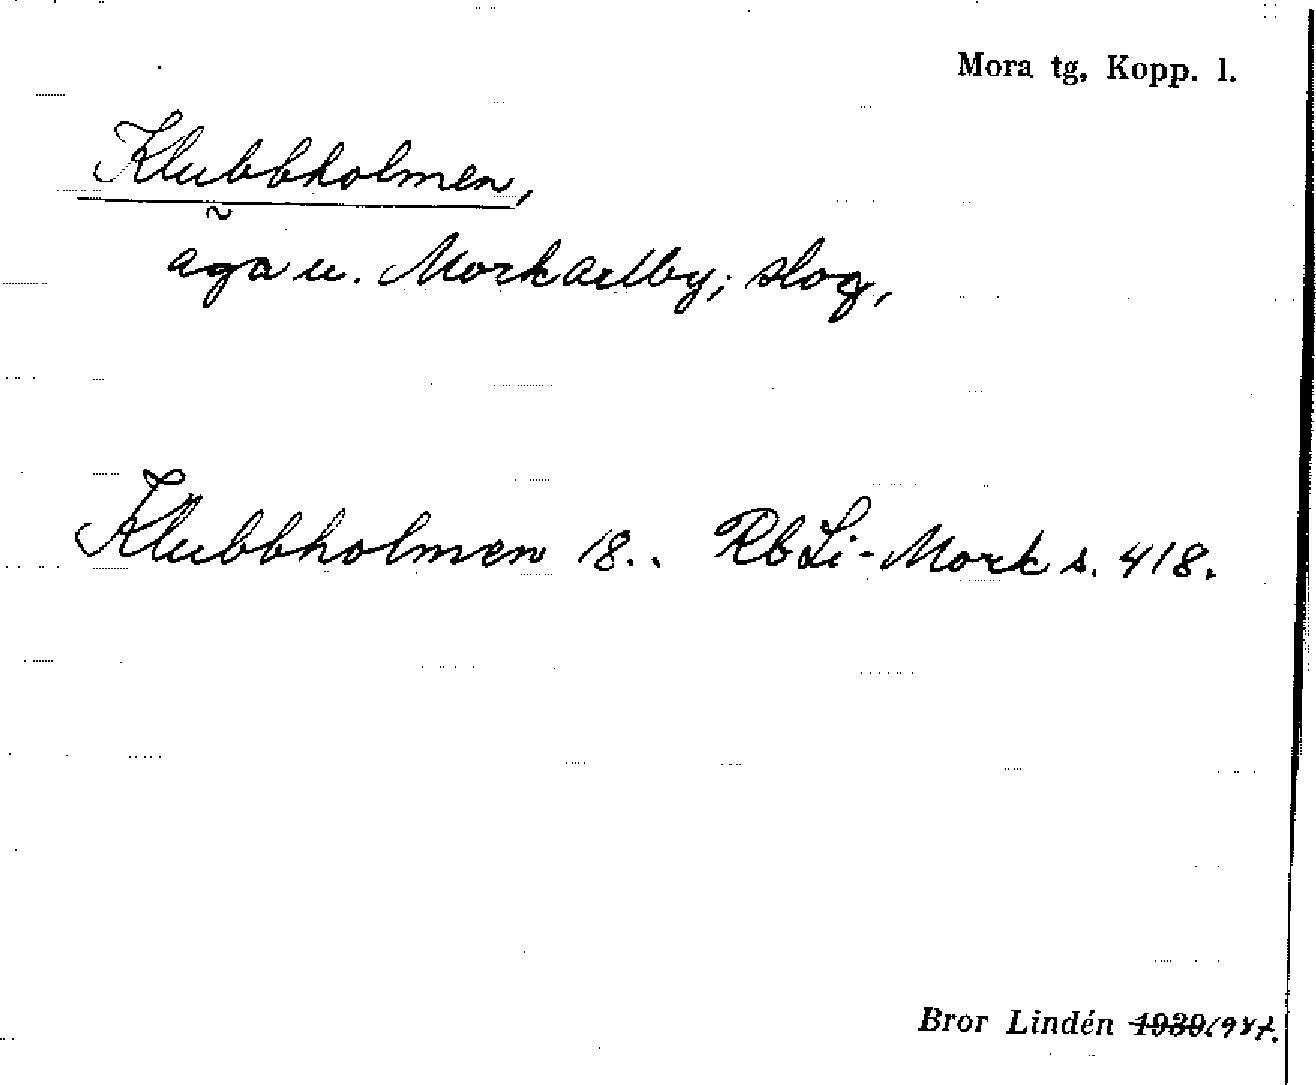 Mora tg, Kopp. l.
Klubbholmen,
äga u. Morkarlby; slog,
Klubbholmen 18.. Rb Li-Mork s. 418.
Bror Lindén 1939